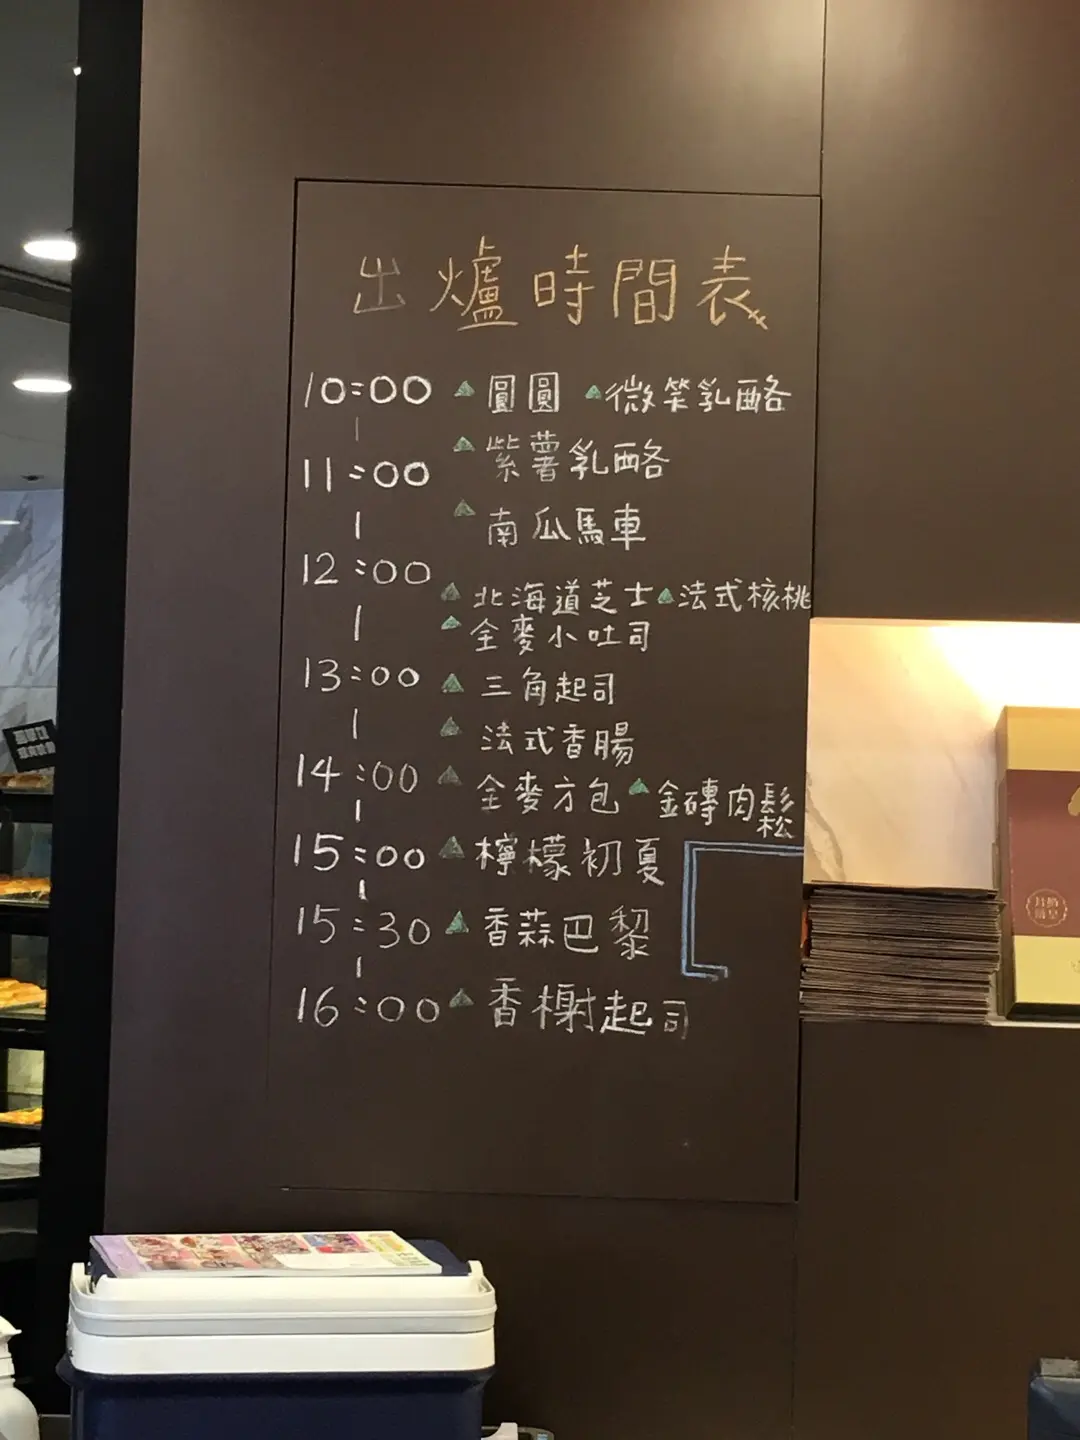 出爐時間表
10:00 ▲圓圓 ▲微笑乳酪
|
▲紫薯乳酪
11:00
|
▲南瓜馬車
12:00
▲北海道芝士 ▲法式核桃
|
▲全麥小吐司
13:00 ▲三角起司
|
▲法式香腸
14:00 ▲全麥方包 ▲金磚肉鬆
|
15:00 ▲檸檬初夏
|
15:30 ▲香蒜巴黎
|
16:00 ▲香榭起司